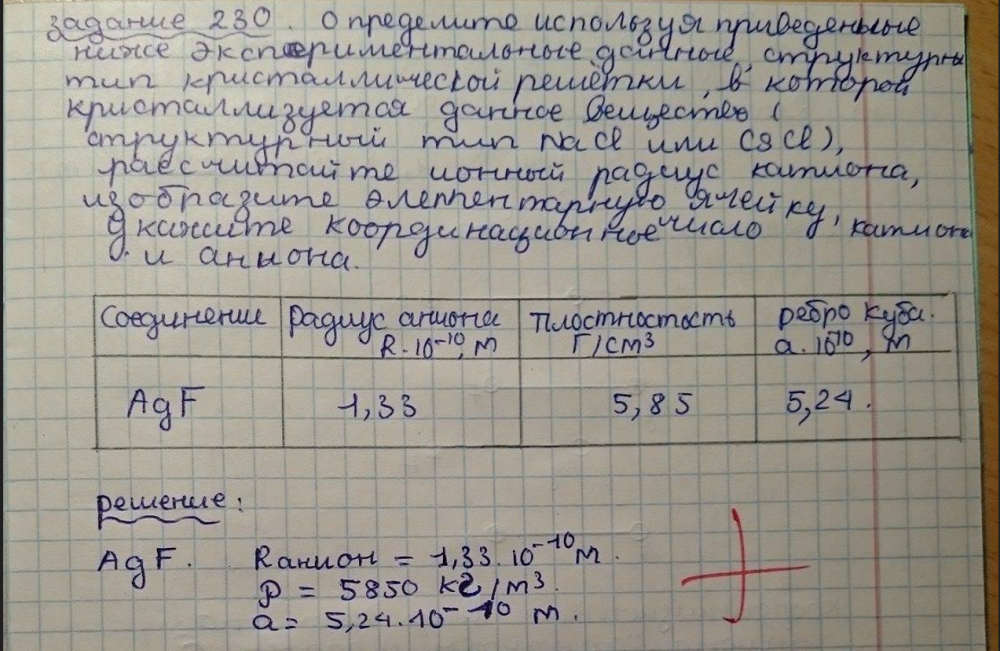 задание 230. определите используя приведеные
ниже экспериментальные данные, структурны
тип кристаллической решётки, в которой
кристаллизуется данное вещество (
структурный тип NaCl или CsCl),
рассчитайте ионный радиус катиона,
изобразите элементарную ячейку,
Укажите координационное число катиона
и аниона.
Соединение | радиус аниона R·10⁻¹⁰, м | плостностость Г/см³ | ребро куба. а·10¹⁰, м
AgF | 1,33 | 5,85 | 5,24.
решение:
AgF. Rанион = 1,33·10⁻¹⁰ м.
ρ = 5850 кг/м³.
a = 5,24·10⁻¹⁰ м.